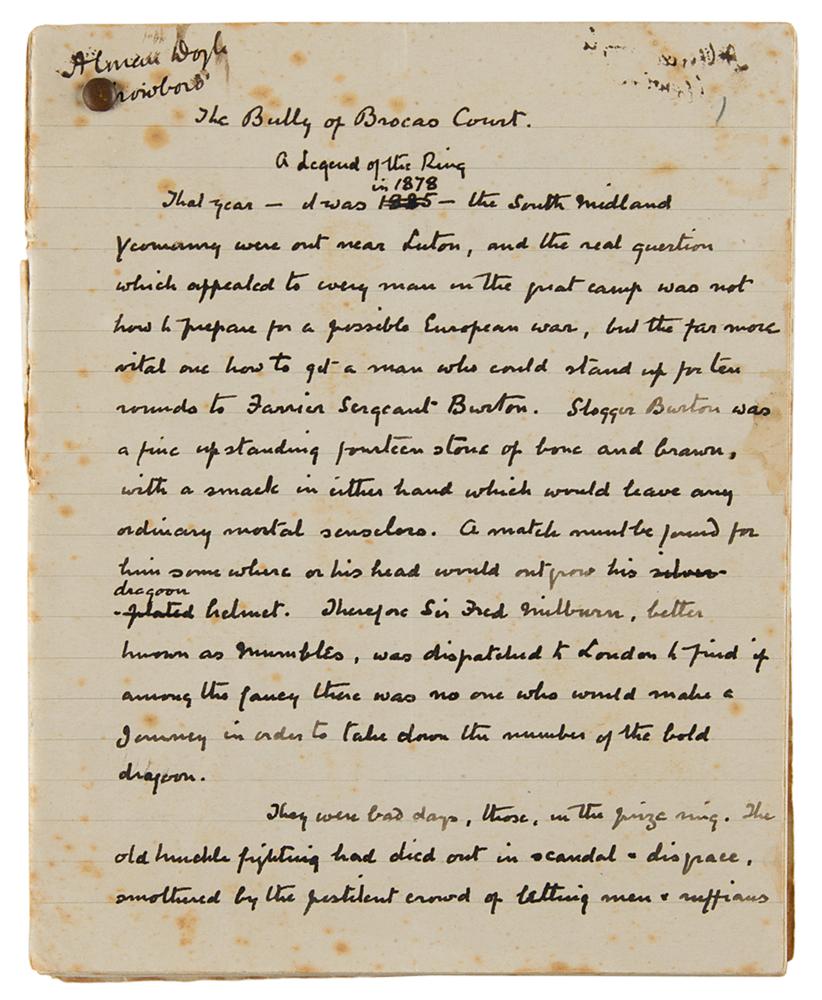 A Conan Doyle
Crowboro'
The Bully of Brocas Court.
A Legend of the Ring
in 1878
That year – it was 1885 – the South Midland
Yeomanry were out near Luton, and the real question
which appealed to every man in the great camp was not
how to prepare for a possible European war, but the far more
vital one how to get a man who could stand up for ten
rounds to Farrier Sergeant Burton. Slogger Burton was
a fine upstanding fourteen stone of bone and brawn,
with a smack in either hand which would leave any
ordinary mortal senseless. A match must be found for
him somewhere or his head would outgrow his silver-
dragoon
-plated helmet. Therefore Sir Fred Milburn, better
known as Mumbles, was dispatched to London to find if
among the fancy there was no one who would make a
journey in order to take down the number of the bold
dragoon.
They were bad days, those, in the prize ring. The
old knuckle fighting had died out in scandal & disgrace,
smothered by the pestilent crowd of betting men & ruffians